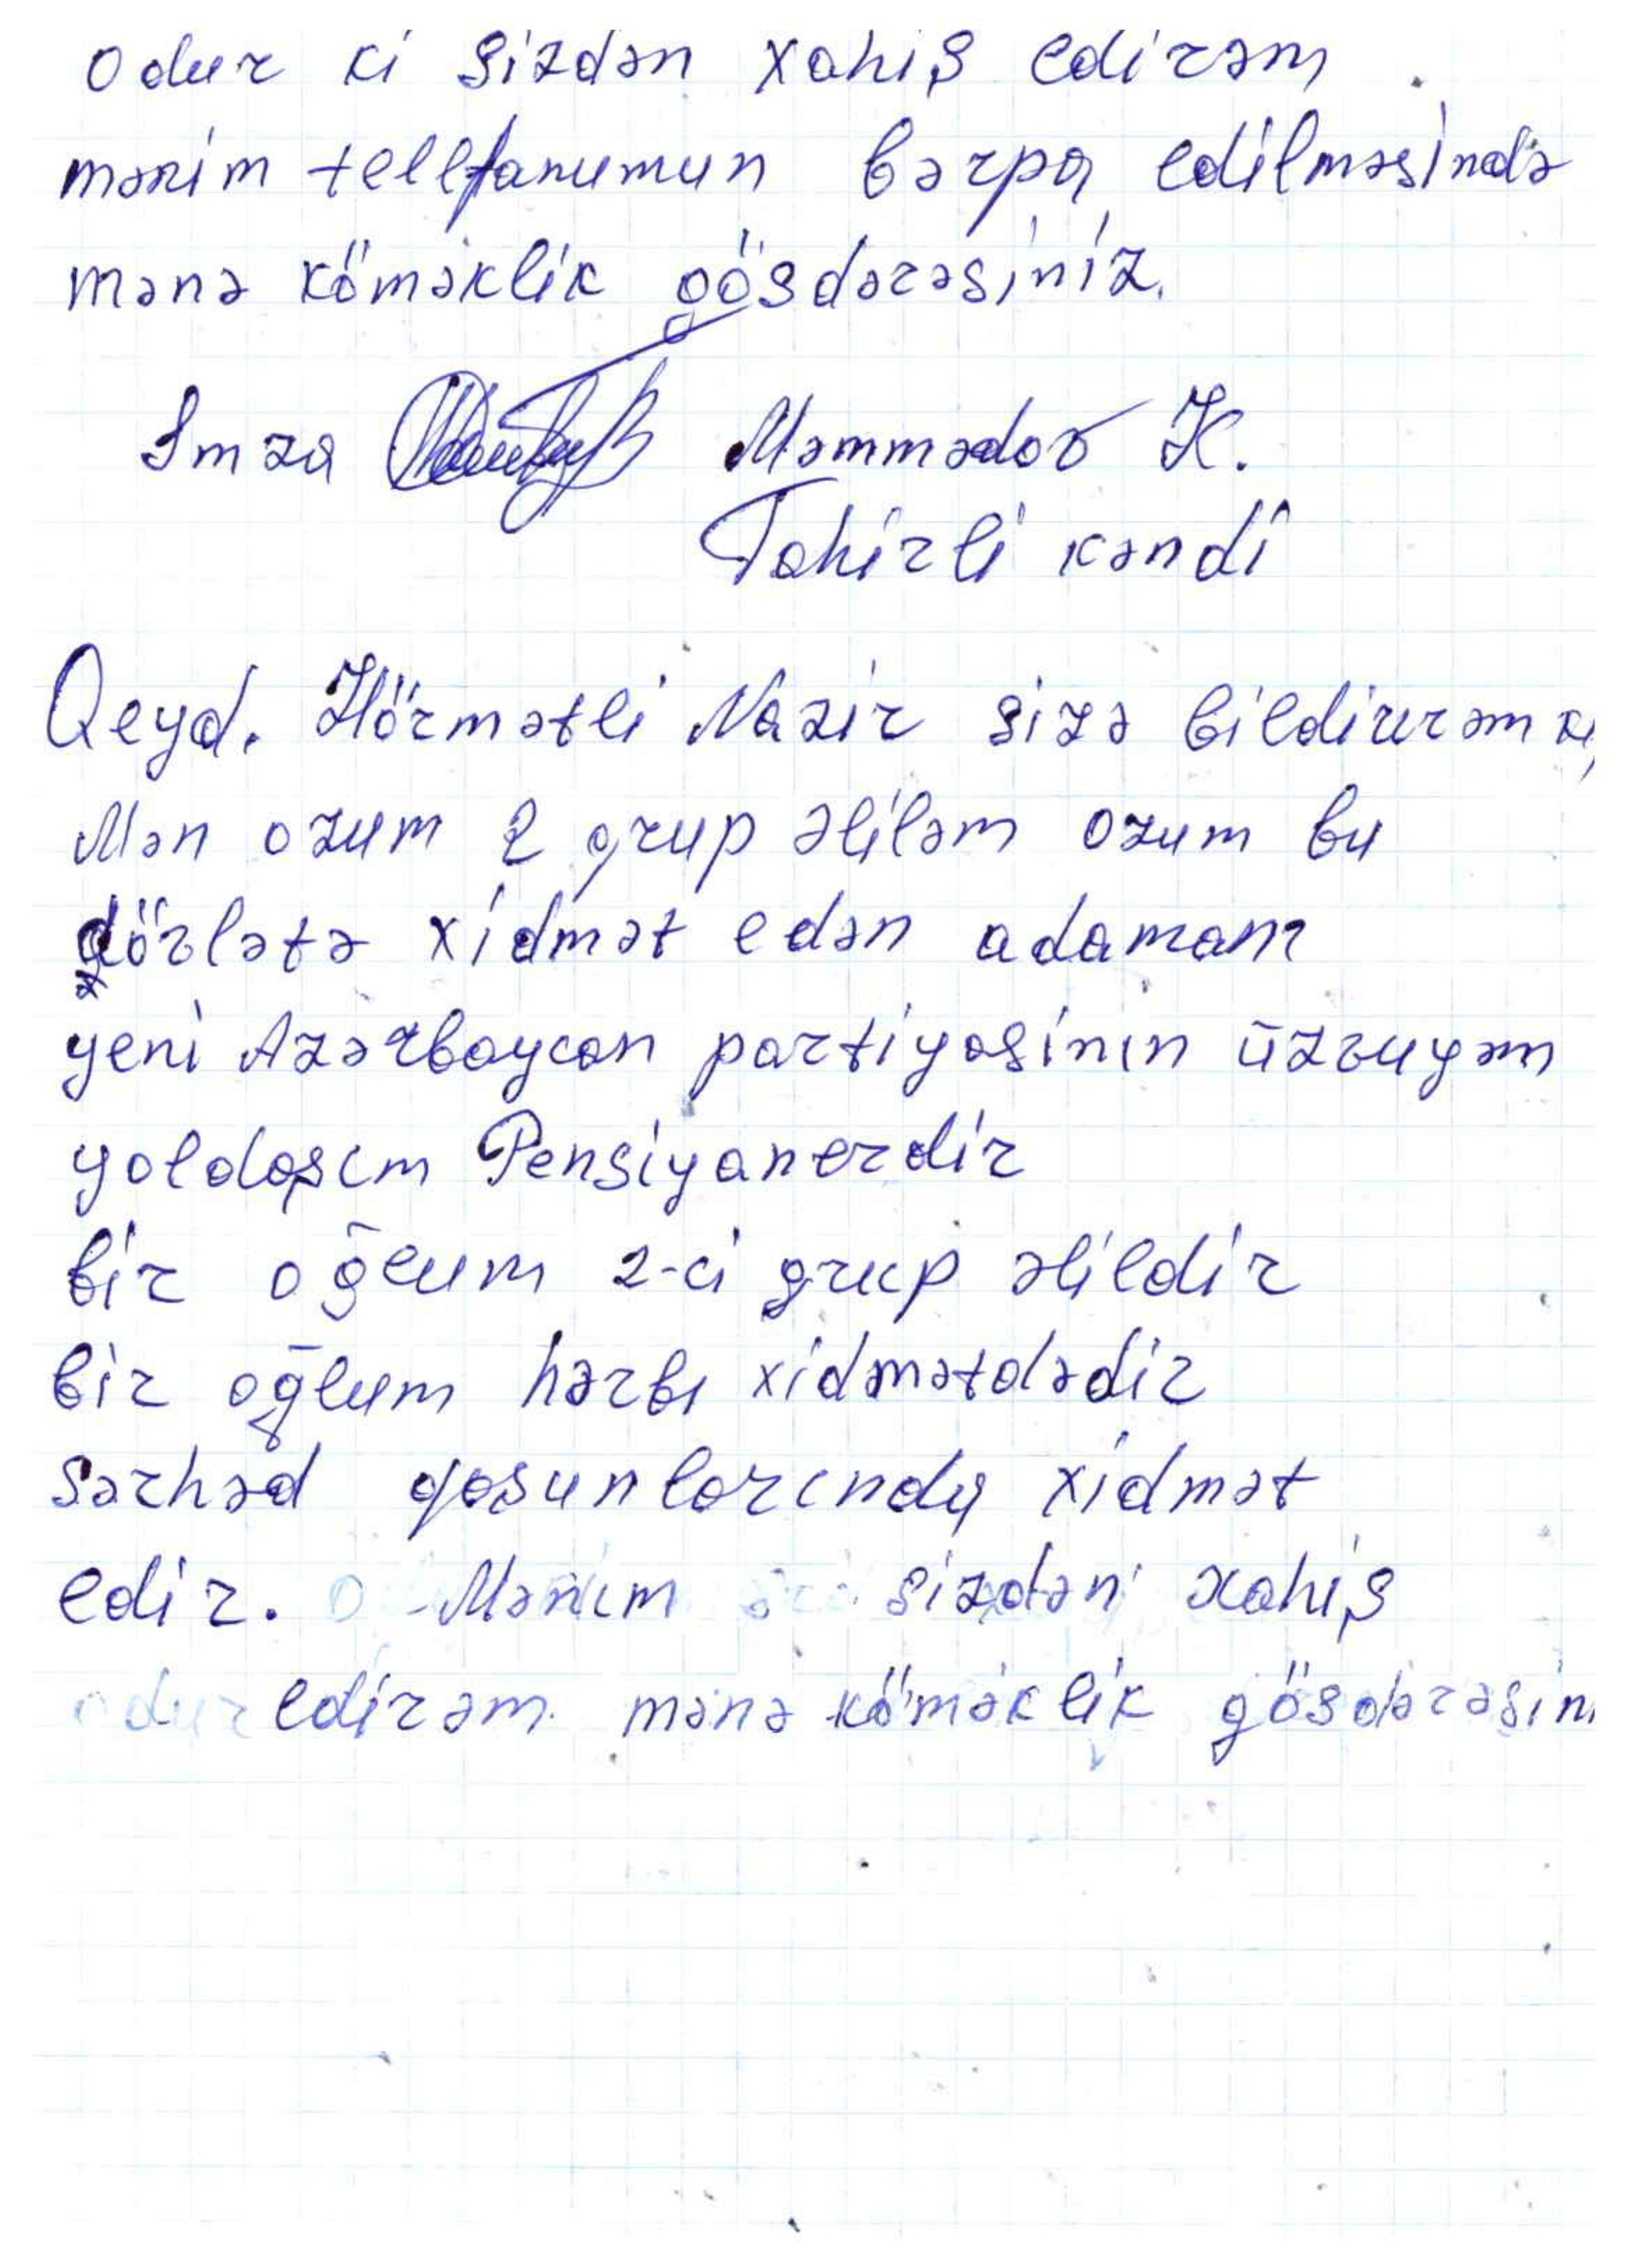 odur ki sizdən xahiş edirəm
mənim tellfanumun bərpa edilməsində
mənə köməklik gösdərəsiniz.
Imza Məmmədov K.
Tahirli kəndi
Qeyd. Hörmətli Nazir sizə bildirirəm ki,
Mən ozum 2 grup əliləm ozum bu
dövlətə xidmət edən adamam
yeni Azərbaycan partiyasinin üzvuyəm
yoldaşım Pensiyanerdir
bir oğlum 2-ci grup əlildir
bir oğlum hərbı xidmətdədir
Sərhəd qosunlarında xidmət
edir. Mənım sizdən xahiş
edirəm mənə köməklik gösdərəsin